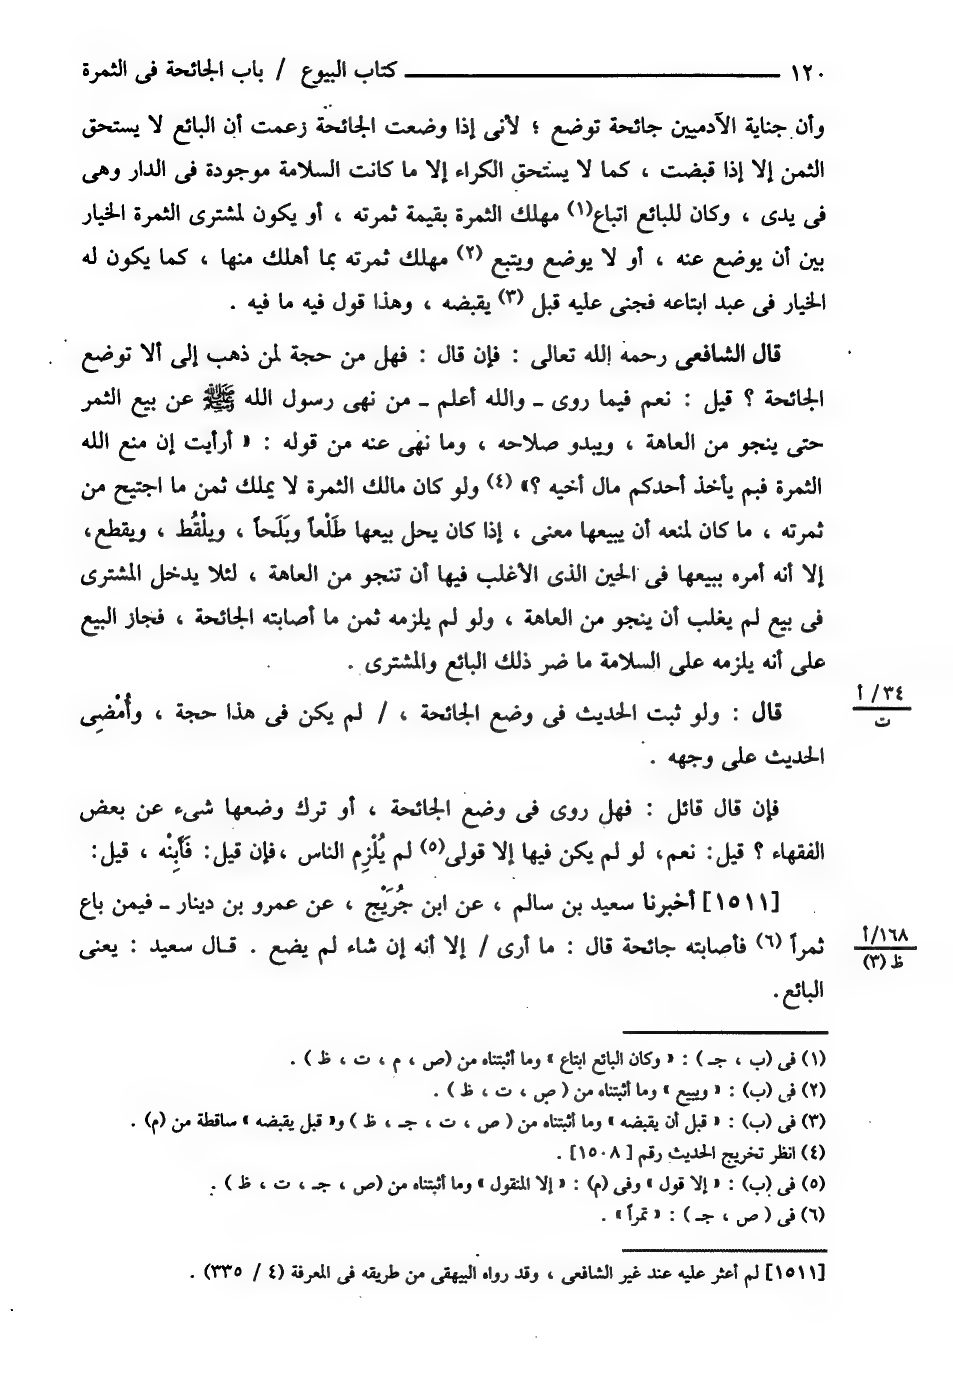 ١٢٠ كتاب البيوع / باب الجائحة فى الثمرة
وأن جناية الآدميين جائحة توضع ؛ لأنى إذا وضعت الجائحة زعمت أن البائع لا يستحق
الثمن إلا إذا قبضت ، كما لا يستحق الكراء إلا ما كانت السلامة موجودة فى الدار وهى
فى يدى ، وكان للبائع اتباع(١) مهلك الثمرة بقيمة ثمرته ، أو يكون لمشترى الثمرة الخيار
بين أن يوضع عنه ، أو لا يوضع ويتبع (٢) مهلك ثمرته بما أهلك منها ، كما يكون له
الخيار فى عبد ابتاعه فجنى عليه قبل (٣) يقبضه ، وهذا قول فيه ما فيه .
قال الشافعى رحمه الله تعالى : فإن قال : فهل من حجة لمن ذهب إلى ألا توضع
الجائحة ؟ قيل : نعم فيما روى ـ والله أعلم ـ من نهى رسول الله ﷺ عن بيع الثمر
حتى ينجو من العاهة ، ويبدو صلاحه ، وما نهى عنه من قوله : « أرأيت إن منع الله
الثمرة فبم يأخذ أحدكم مال أخيه ؟» (٤) ولو كان مالك الثمرة لا يملك ثمن ما اجتيح من
ثمرته ، ما كان لمنعه أن يبيعها معنى ، إذا كان يحل بيعها طَلْعاً وبَلَحاً ، ويلْقُط ، ويقطع،
إلا أنه أمره ببيعها فى الحين الذى الأغلب فيها أن تنجو من العاهة ، لئلا يدخل المشترى
فى بيع لم يغلب أن ينجو من العاهة ، ولو لم يلزمه ثمن ما أصابته الجائحة ، فجاز البيع
على أنه يلزمه على السلامة ما ضر ذلك البائع والمشترى .
٣٤/ أ
ت
قال : ولو ثبت الحديث فى وضع الجائحة ، / لم يكن فى هذا حجة ، وأُمْضِى
الحديث على وجهه .
فإن قال قائل : فهل روى فى وضع الجائحة ، أو ترك وضعها شىء عن بعض
الفقهاء ؟ قيل: نعم، لو لم يكن فيها إلا قولى(٥) لم يُلْزِم الناس ،فإن قيل: فَأَبِنْه ، قيل:
[١٥١١] أخبرنا سعيد بن سالم ، عن ابن جُرَيْج ، عن عمرو بن دينار ـ فيمن باع
١٦٨/أ
ظ (٣)
ثمراً (٦) فأصابته جائحة قال : ما أرى / إلا أنه إن شاء لم يضع . قـال سعيد : يعنى
البائع.
(١) فى (ب ، جـ ) : « وكان البائع ابتاع » وما أثبتناه من (ص ، م ، ت ، ظ ) .
(٢) فى (ب) : « ويبيع » وما أثبتناه من ( ص ، ت ، ظ ) .
(٣) فى (ب) : « قبل أن يقبضه » وما أثبتناه من ( ص ، ت ، جـ ، ظ ) و« قبل يقبضه » ساقطة من (م) .
(٤) انظر تخريج الحديث رقم [ ١٥٠٨] .
(٥) فى (ب) : « إلا قول » وفى (م) : « إلا المنقول » وما أثبتناه من (ص ، جـ ، ت ، ظ ) .
(٦) فى ( ص ، جـ ) : « تمراً » .
[١٥١١] لم أعثر عليه عند غير الشافعى ، وقد رواه البيهقى من طريقه فى المعرفة (٤ / ٣٣٥) .